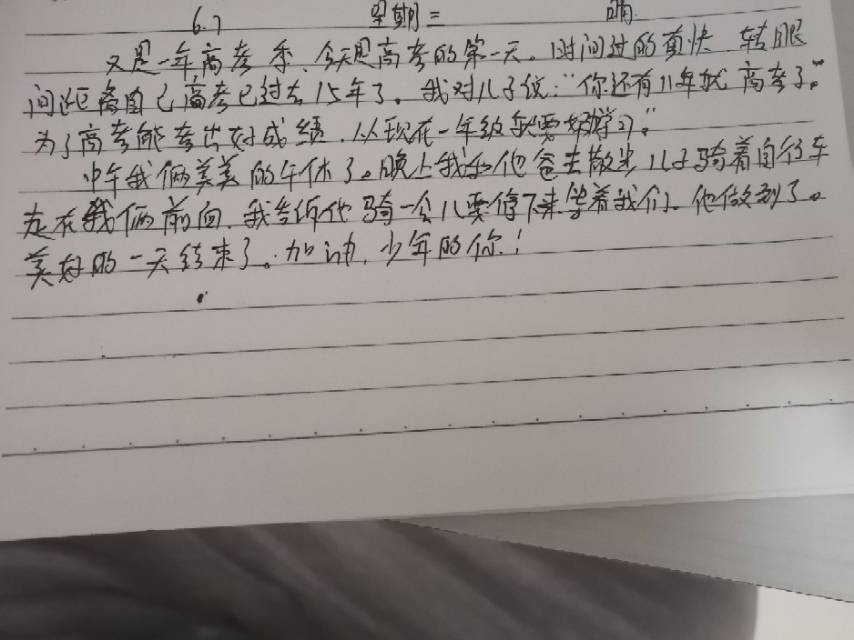 6.7 星期二 晴
又是一年高考季、今天是高考的第一天。时间过的真快 转眼
间距离自己高考已过去15年了。我对儿子说:“你还有11年就高考了。”
为了高考能考出好成绩、从现在一年级就要好好学习。”
中午我俩美美的午休了。晚上我和他爸去散步儿子骑着自行车
走在我俩前面、我告诉他骑一会儿要停下来等着我们。他做到了。
美好的一天结束了。加油、少年的你!